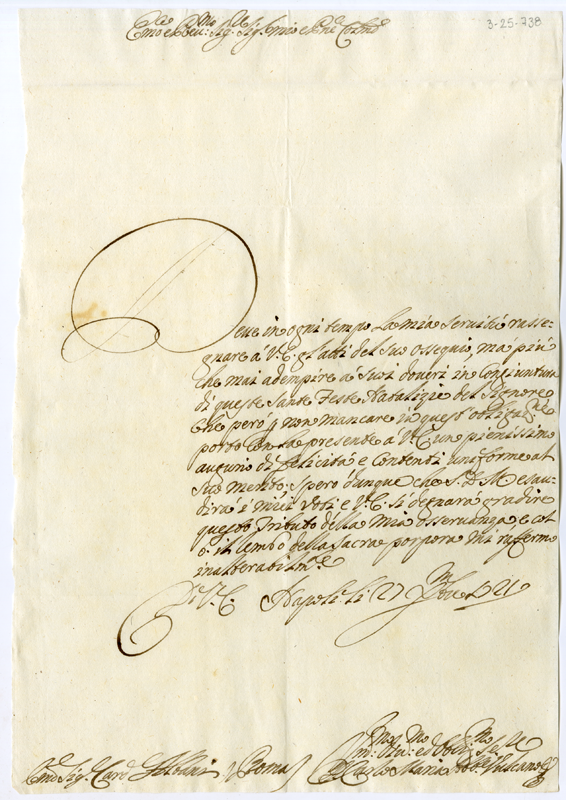 3-25-738
Emo e Reu: Sig. Sig. mio e Pne Colmo
Deue in ogni tempo la mia seruitù rasse-
gnare à V.E. gl'atti del suo ossequio, mà più
che mai adempire à suoi doueri in congiuntura
di queste Sante Feste Natalizie del Signore
che però p non mancare in quest'obligaz.ne
porto con la presente à V.E. un pienissimo
augurio di felicità e contenti uniforme al
suo merito; spero dunque che S.D.M. esau-
dirà i miei voti e V.E. si degnarà gradire
questo tributo della mia osseruanza, e col
lembo della sacra porpora mi raffermo
inalterabilm.e
Di V.E. Napoli li 27 Xbre 1721
Emo Sig. Card. Albani Roma
Carlo Maria